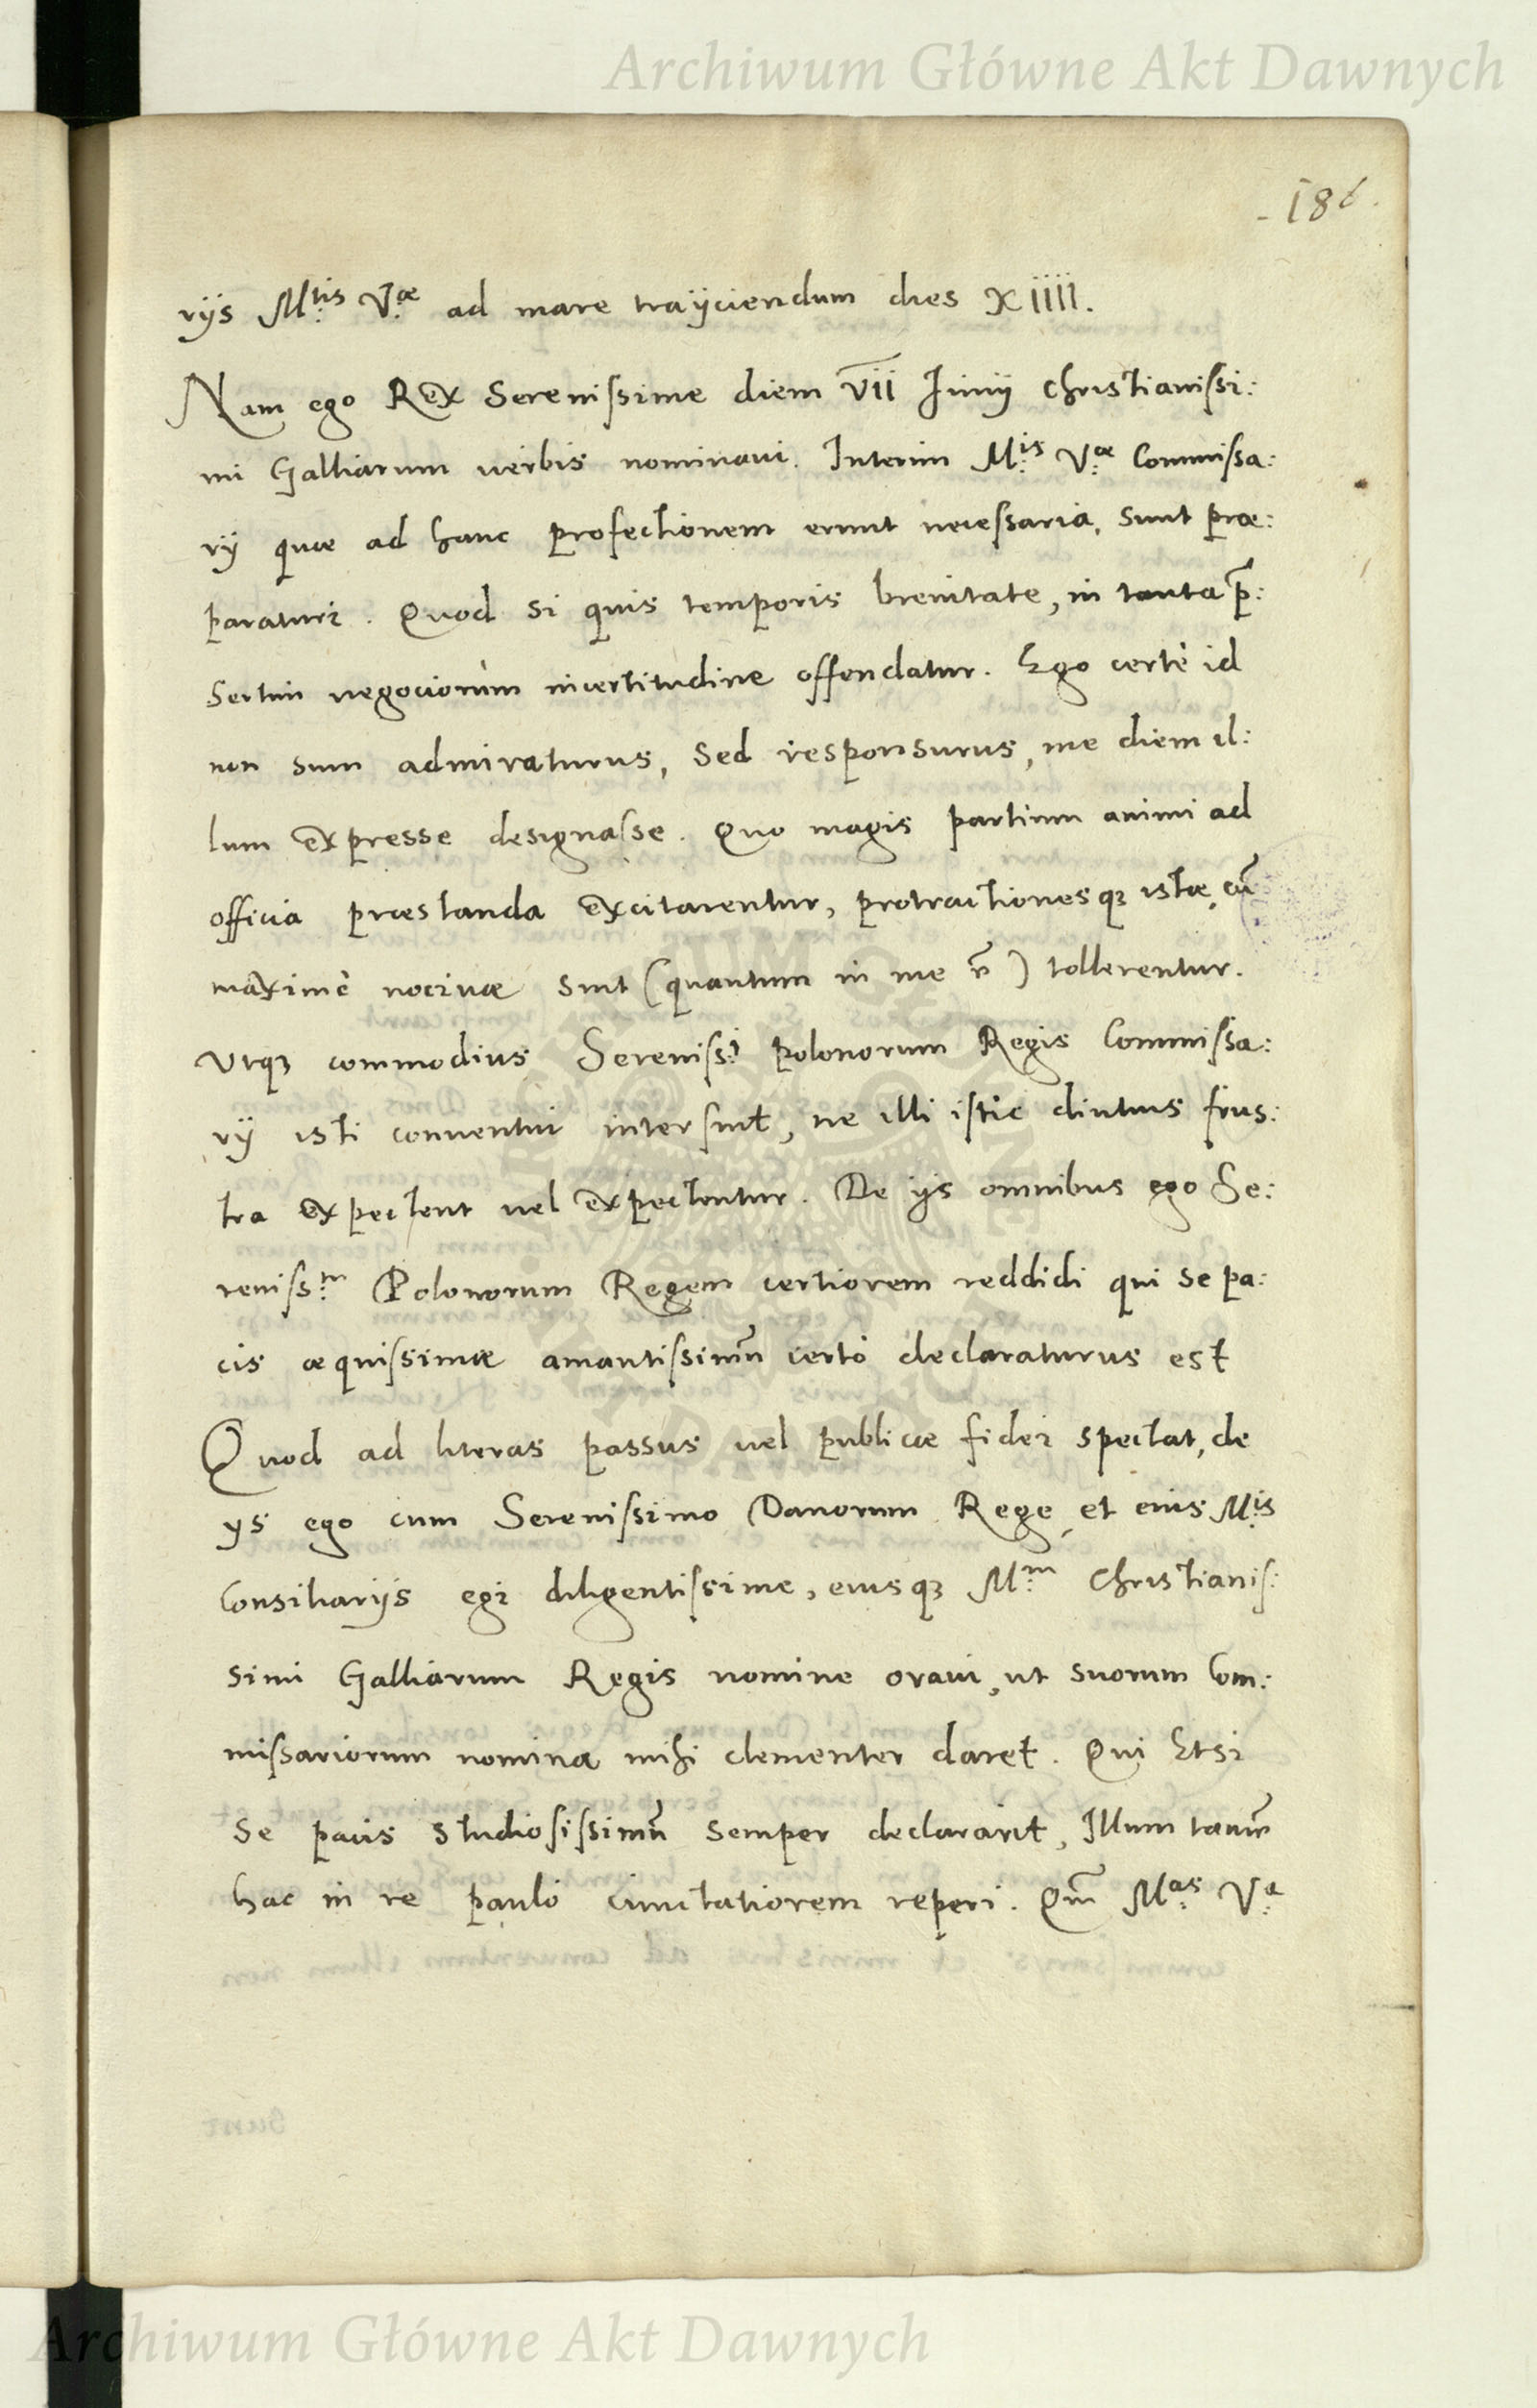 Archiwum Główne Akt Dawnych
rijs M:tis V:æ ad mare traijciendum dies XIIII.
Nam ego Rex Serenissime diem VII Junij Christianissi:
mi Galliarum verbis nominavi. Interim M:is V:æ Commissa:
rij quæ ad hanc profectionem erunt necessaria, sunt præ:
paraturi. Quod si quis temporis brevitate, in tanta p̄:
sertim negociorum incertitudine offendatur. Ego certè id
non sum admiraturus, sed responsurus, me diem il:
lum expresse designasse. Quo magis partium animi ad
officia præstanda excitarentur, protractionesq3 istæ, cū
maximè nocivæ sint (quantum in me ) tollerentur.
Utq3 commodius Sereniss:i polonorum Regis Commissa:
rij isti conventui intersint, ne illi istic diutius frus:
tra expectent vel expectentur. De ijs omnibus ego Se:
reniss:m Polonorum Regem certiorem reddidi qui se pa:
cis æquissimæ amantissimū certò declaraturus est
Quod ad literas passus vel publicæ fidei spectat, de
ys ego cum Serenissimo Danorum Rege, et eius M:is
Consiliarijs egi diligentissime, eiusq3 M:m Christianis:
simi Galliarum Regis nomine oravi, ut suorum Com:
missariorum nomina mihi clementer daret. Qui Etsi
se pacis studiosissimū semper declararit, Illum tamē
hac in re paulò cunctatiorem reperi. Qm̄ M:as V:a
Archiwum Główne Akt Dawnych